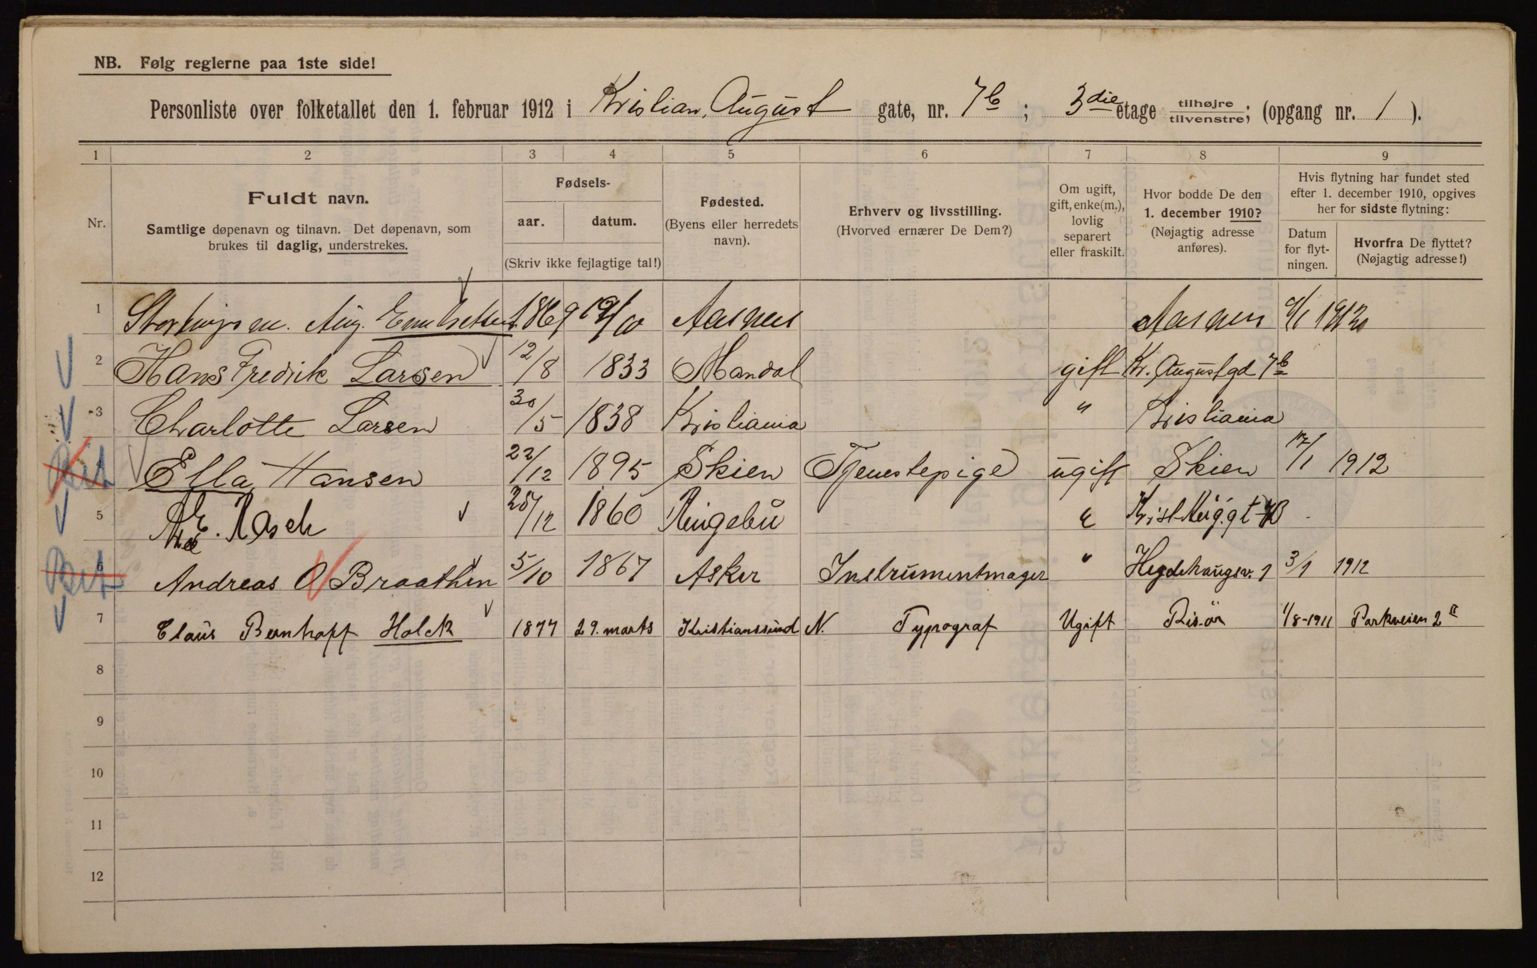 NB. Følg reglerne paa 1ste side!
Personliste over folketallet den 1. februar 1912 i Kristian August gate, nr. 7b ; 3die etage tilhøjre tilvenstre; (opgang nr. 1 ).
1 2 3 4 5 6 7 8 9
Nr.
Fuldt navn.
Samtlige døpenavn og tilnavn. Det døpenavn, som
brukes til daglig, understrekes.
Fødsels-
aar. datum.
(Skriv ikke fejlagtige tal!)
Fødested.
(Byens eller herredets
navn).
Erhverv og livsstilling.
(Hvorved ernærer De Dem?)
Om ugift,
gift, enke(m.),
lovlig
separert
eller fraskilt.
Hvor bodde De den
1. december 1910?
(Nøjagtig adresse
anføres).
Hvis flytning har fundet sted
efter 1. december 1910, opgives
her for sidste flytning:
Datum
for flyt-
ningen.
Hvorfra De flyttet?
(Nøjagtig adresse!)
1 Stortingsm. Aug. Embretsen 1869 Aasnes Aasnes
2 Hans Fredrik Larsen 12/8 1833 Mandal gift Kr. Augustgd 7b
3 Charlotte Larsen 30/5 1838 Kristiania " Kristiania
Ella Hansen 22/12 1895 Skien Tjenestepige ugift Skien 17/1 1912
5 Rasch 28/12 1860 Ringebu
6 Andreas O Braathen 5/10 1867 Asker Instrumentmager " Hegdehaugsv. 1 3/1 1912
7 Claus Bernhoft Holck 1877 29. marts Kristianssund N. Typograf Ugift Risør 1/8-1911 Parkveien 2 II
8
9
10
11
12